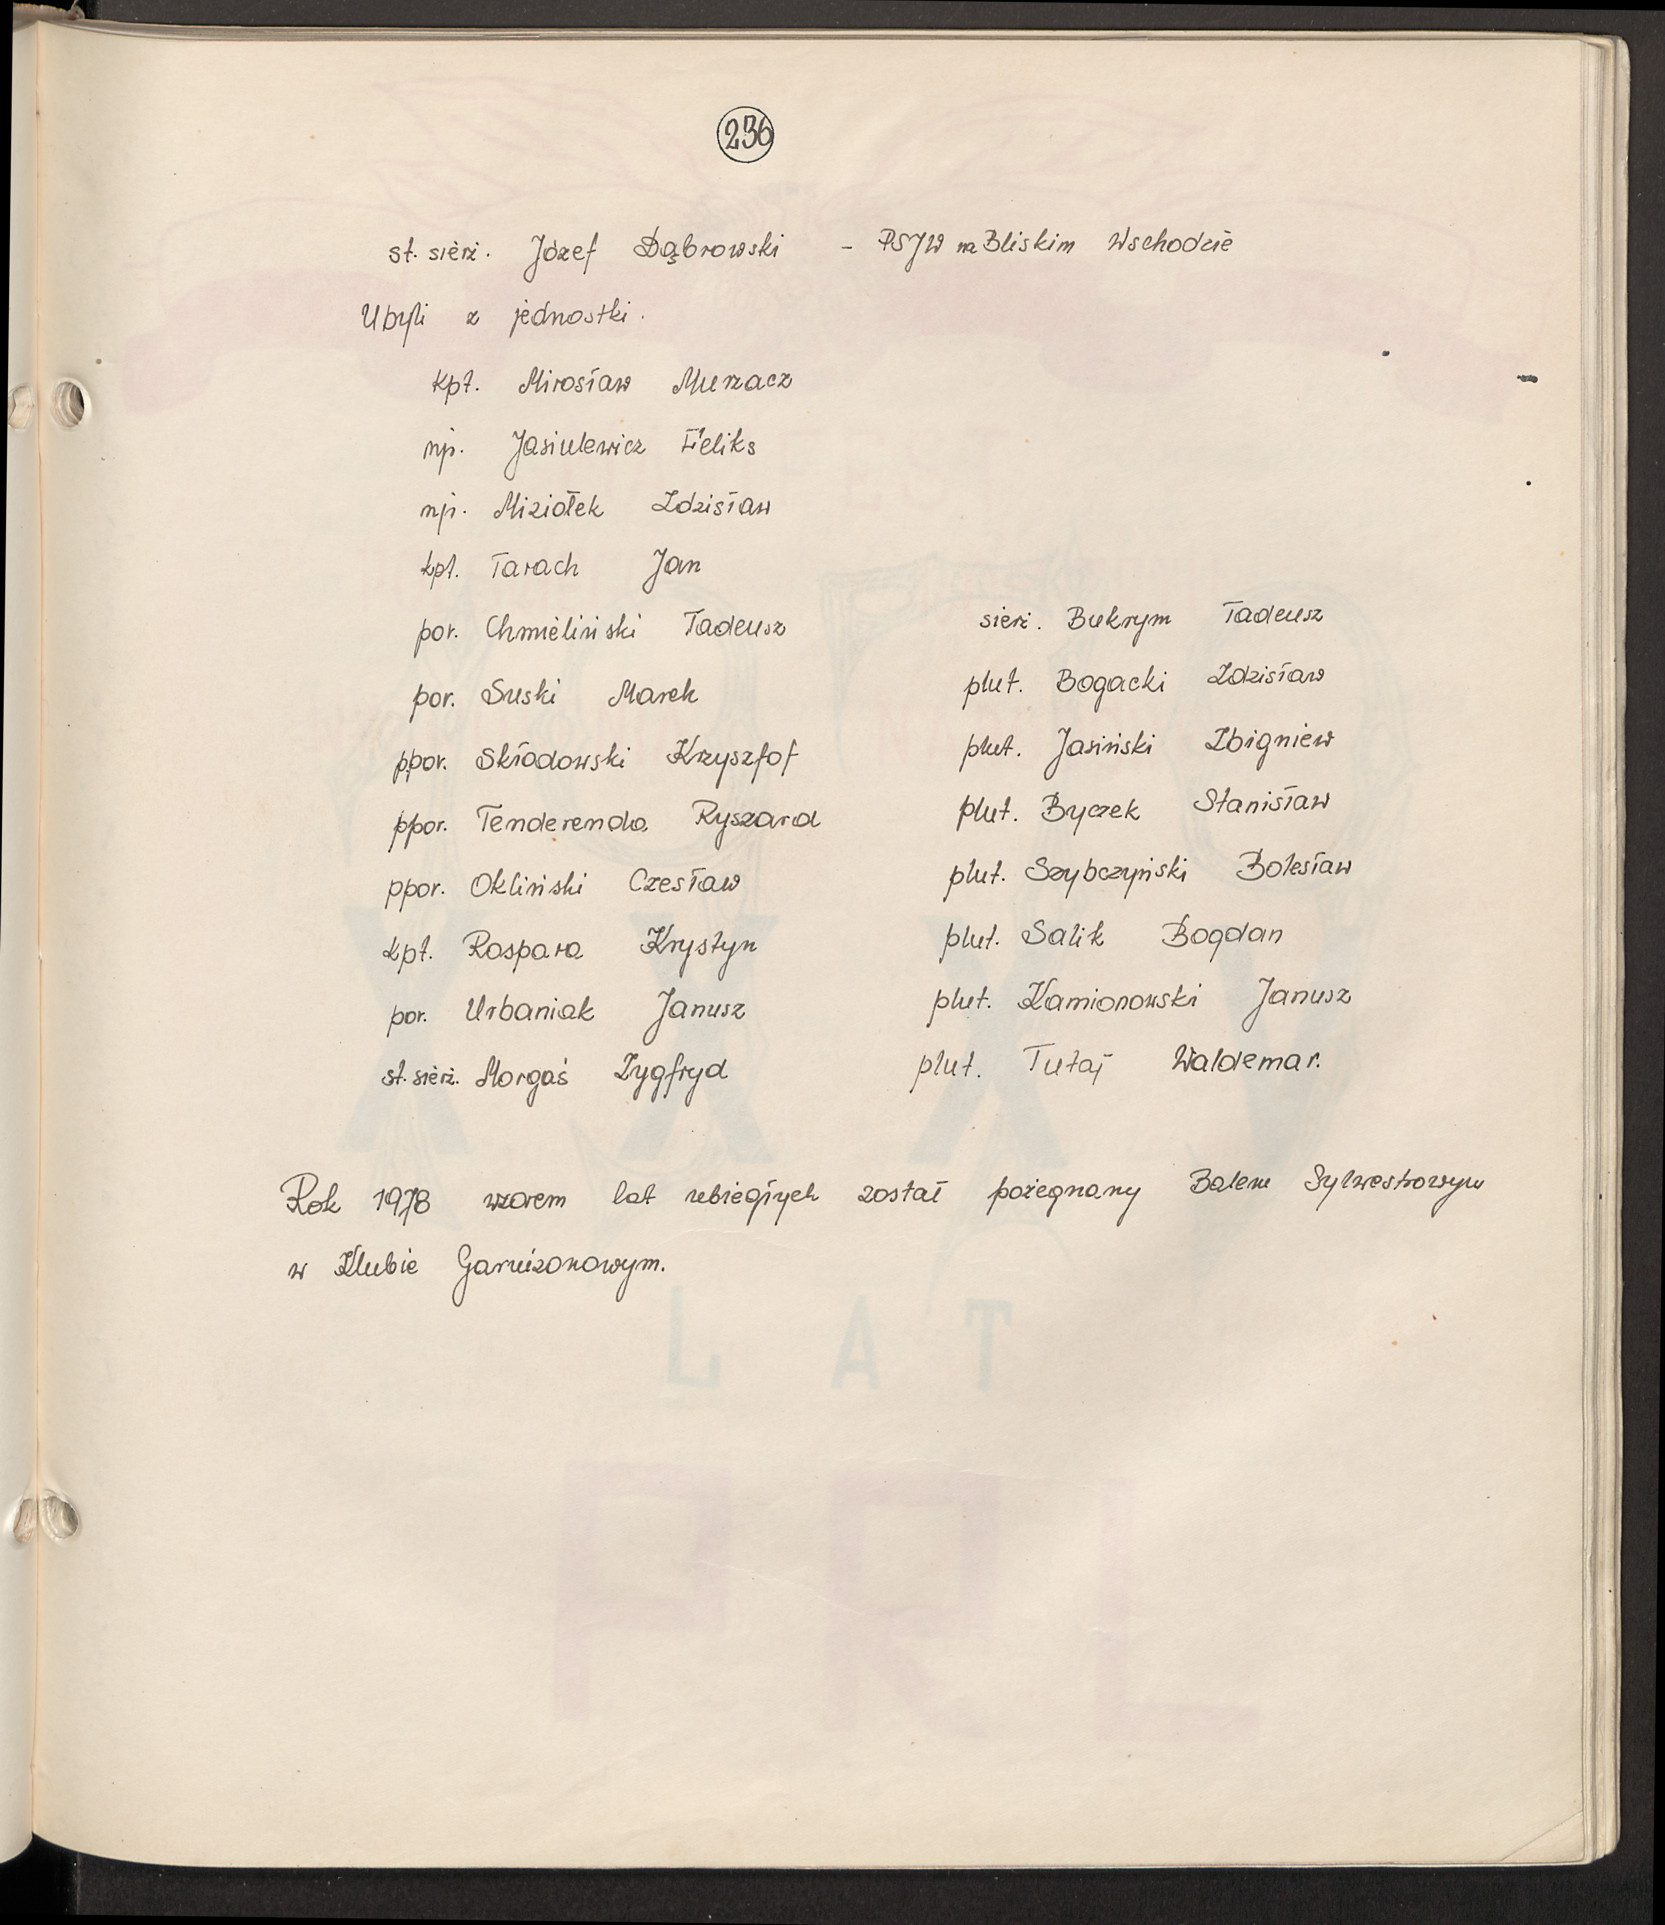 236
st. sierż. Józef Dąbrowski - PSJW na Bliskim Wschodzie
Ubyli z jednostki.
kpt. Mirosław Murzacz
mjr. Jasiulewicz Feliks
mjr. Miziołek Zdzisław
kpt. Tarach Jan
por. Chmieliński Tadeusz
por. Suski Marek
ppor. Skłodowski Krzysztof
ppor. Tenderenda Ryszard
ppor. Okliński Czesław
kpt. Raspara Krystyn
por. Urbaniak Janusz
st. sierż. Morgaś Zygfryd
sierż. Bukrym Tadeusz
plut. Bogacki Zdzisław
plut. Jasiński Zbigniew
plut. Byczek Stanisław
plut. Szybczyński Bolesław
plut. Salik Bogdan
plut. Kamionowski Janusz
plut. Tutaj Waldemar.
Rok 1978 wzorem lat ubiegłych został pożegnany Balem Sylwestrowym
w Klubie Garnizonowym.
LAT
PRL